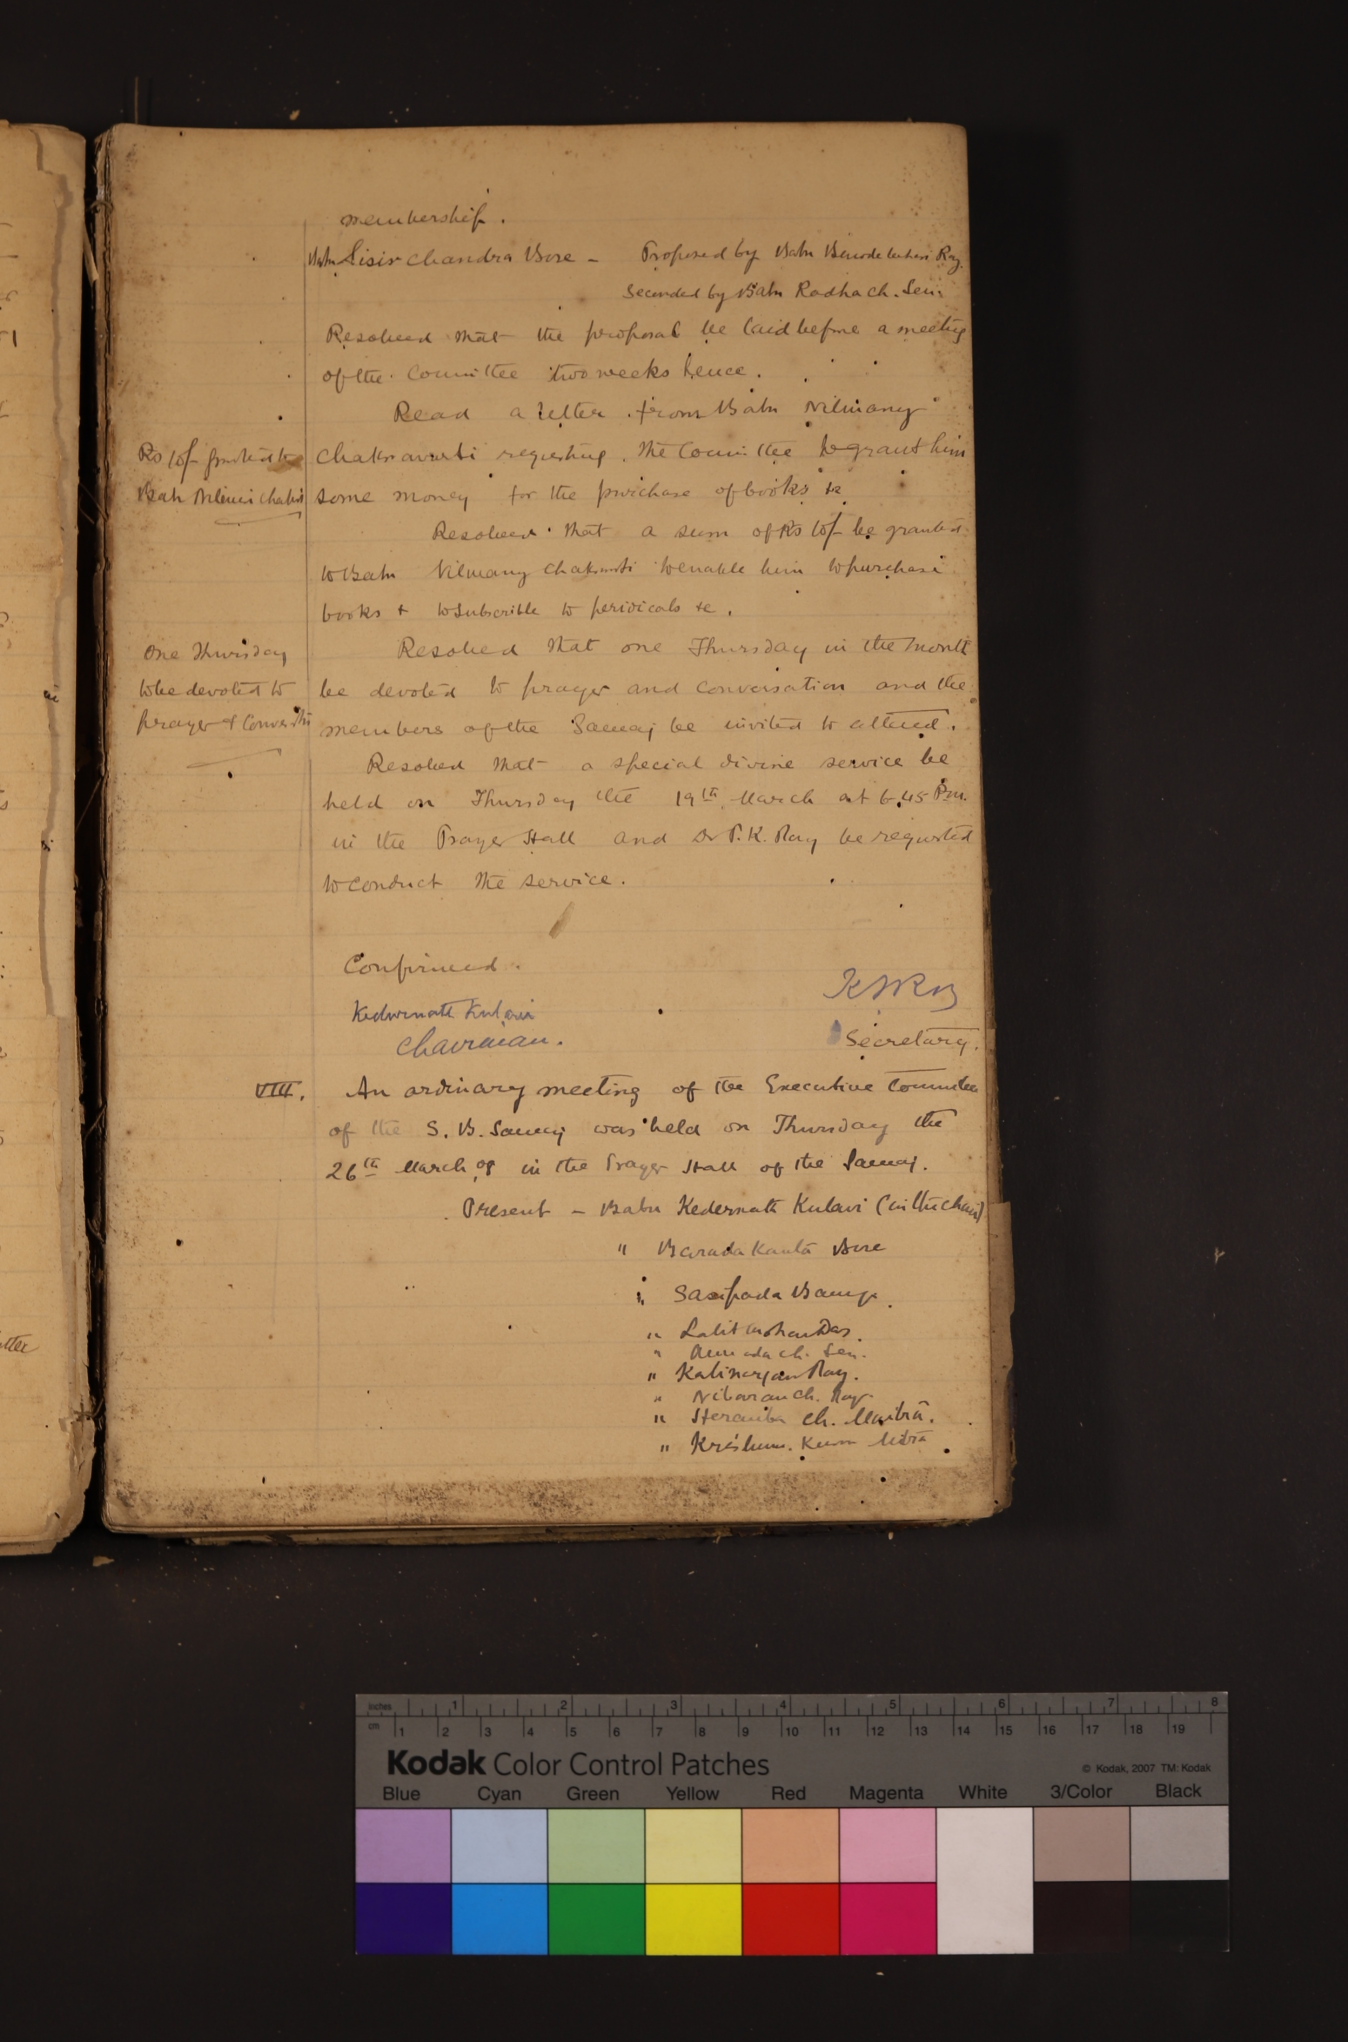 membership.
Babu Sisir Chandra Bose - Proposed by Babu Benode behari Ray.
Seconded by Babu Radha ch. Sen.
Resolved that the proposal be laid before a meeting
of the Committee two weeks hence.
Read a letter from Babu Nilmany
Rs 10/- granted to
Babu Nilmani Chakra
Chakravarti requesting the Committee to grant him
some money for the purchase of books &c
Resolved that a sum of Rs 10/- be granted
to Babu Nilmany Chakravarti to enable him to purchase
books & to subscribe to periodicals &c.
One Thursday
to be devoted to
prayer & Conversatn
Resolved that one Thursday in the month
be devoted to prayer and conversation and the
members of the Samaj be invited to attend.
Resolved that a special divine service be
held on Thursday the 19th March at 6.45 P.m.
in the Prayer Hall and Dr P. K. Ray be requested
to conduct the service.
Confirmed.
Kedernath Kulavi
Chairman.
Secretary.
VIII. An ordinary meeting of the Executive Committee
of the S. B. Samaj was held on Thursday the
26th March 08 in the Prayer Hall of the Samaj.
Present - Babu Kedernath Kulavi (in the chair)
" Barada Kanta Bose
" Satipada Banerje
" Lalit mohan Das.
" Annada ch. Sen.
" Kalinarjan Ray.
" Nibaran Ch. Ray
" Heramba Ch. Maitra.
" Krishna Kumar Mitra
inches 1 2 3 4 5 6 7 8
cm 1 2 3 4 5 6 7 8 9 10 11 12 13 14 15 16 17 18 19
Kodak Color Control Patches
© Kodak, 2007 TM: Kodak
Blue Cyan Green Yellow Red Magenta White 3/Color Black